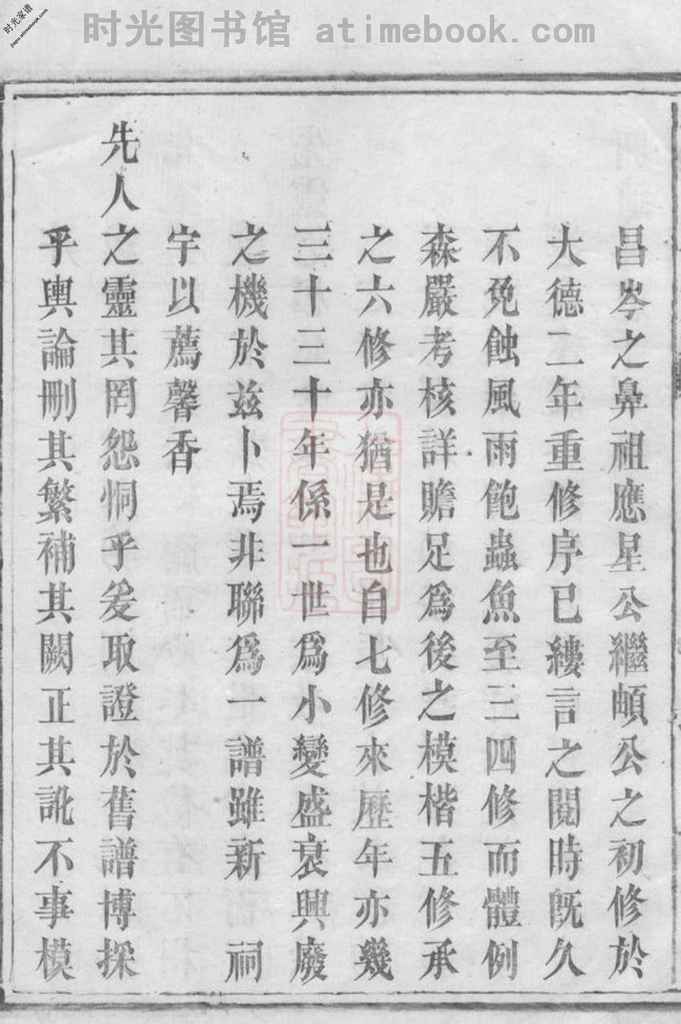 时光图书馆 atimebook.com
时光家谱
昌岑之鼻祖應星公繼頔公之初修於
大德二年重修序已縷言之閱時旣久
不免蝕風雨飽蟲魚至三四修而體例
森嚴考核詳贍足爲後之模楷五修承
之六修亦猶是也自七修來歷年亦幾
三十三十年係一世爲小變盛衰興廢
之機於兹卜焉非聯爲一譜雖新 祠
宇以薦馨香
先人之靈其罔怨恫乎爰取證於舊譜博採
乎輿論刪其繁補其闕正其訛不事模